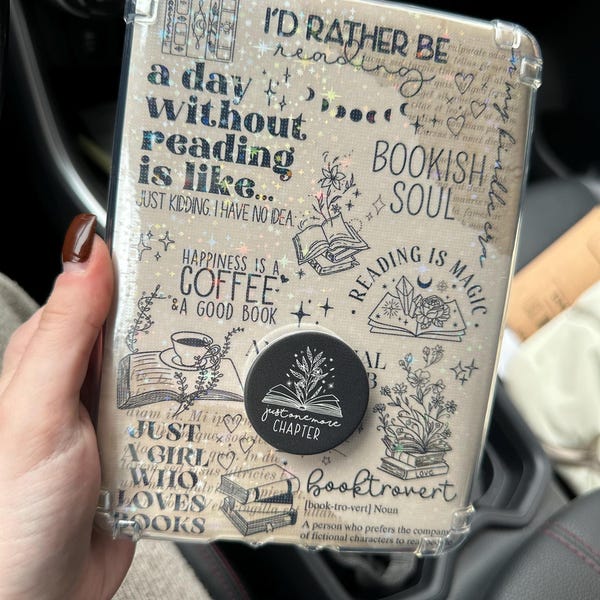 I'D RATHER BE
reading
a day
without
reading
is like...
JUST KIDDING. I HAVE NO IDEA.
BOOKISH
SOUL
in my kindle era
HAPPINESS IS A
COFFEE
& A GOOD BOOK
READING IS MAGIC
just one more
CHAPTER
JUST
A GIRL
WHO
LOVES
BOOKS
LOVE
booktrovert
[book-tro-vert] Noun
A person who prefers the company
of fictional characters to real